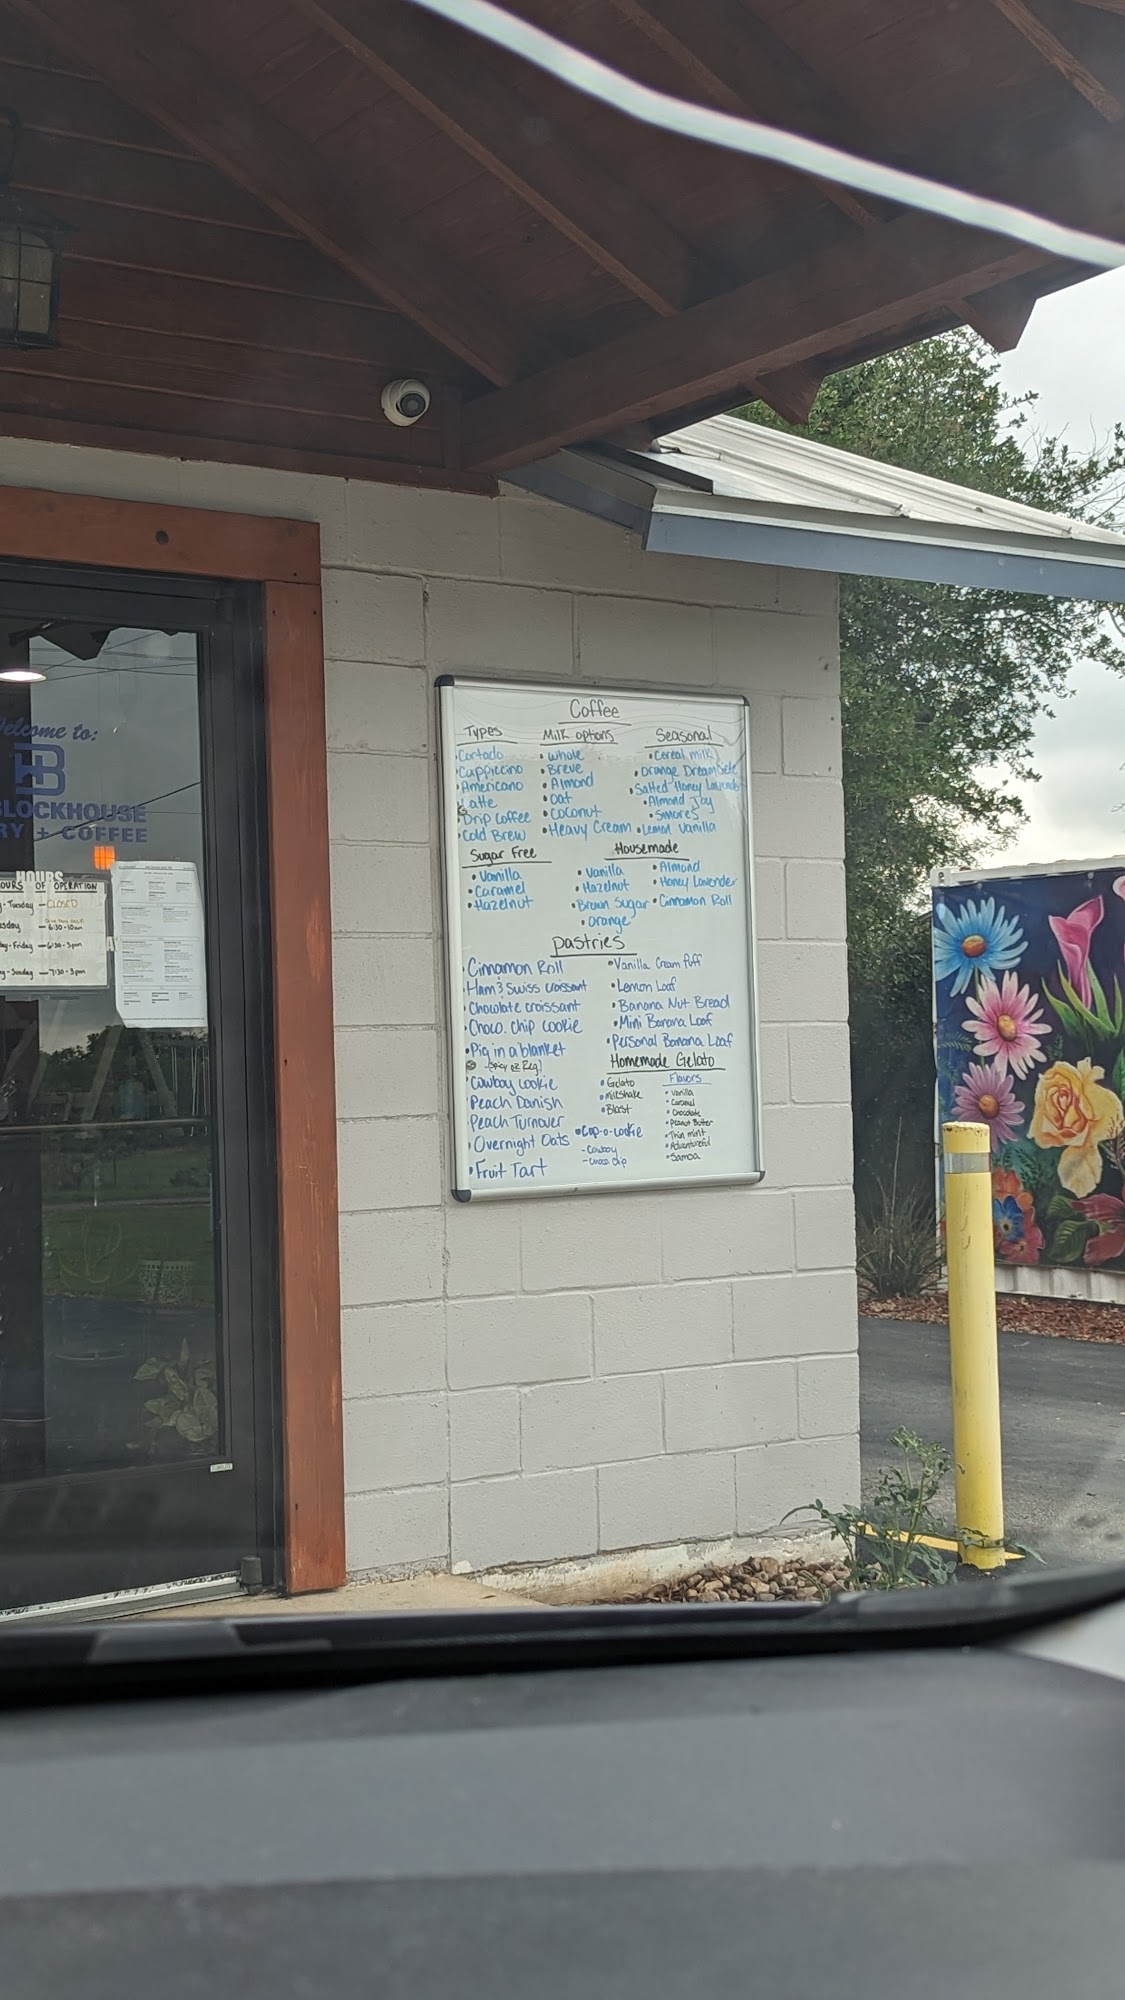 Welcome to:
BLOCKHOUSE
RY + COFFEE
HOURS
OURS OF OPERATION
y-Tuesday - CLOSED
sday - 6:30-10am
ay-Friday - 6:30-3pm
y-Sunday - 7:30-3pm
Coffee
Types
Cortado
Cappiccino
Americano
Latte
Drip Coffee
Cold Brew
Milk options
• Whole
• Breve
• Almond
• Oat
• Coconut
• Heavy Cream
Seasonal
• Cereal milk
• Orange Dreamsicle
• Salted Honey Lavender
• Almond Joy
• Smores
• Lemon Vanilla
Sugar Free
• Vanilla
• Caramel
• Hazelnut
Housemade
• Vanilla
• Hazelnut
• Brown Sugar
• Orange
• Almond
• Honey Lavender
• Cinnamon Roll
Pastries
• Cinnamon Roll
• Ham & Swiss croissant
• Chocolate croissant
• Choco. chip cookie
• Pig in a blanket
- (spicy or Reg)
• Cowboy cookie
• Peach Danish
Peach Turnover
• Overnight Oats
• Fruit Tart
• Vanilla Cream Puff
• Lemon Loaf
• Banana Nut Bread
• Mini Banana Loaf
• Personal Banana Loaf
Homemade Gelato
• Gelato
• Milkshake
• Blast
• Cup-o-cookie
- Cowboy
- Choco. chip
Flavors
• Vanilla
- Caramel
• Chocolate
• Peanut Butter
• Thin mint
• Adventureful
• Samoa